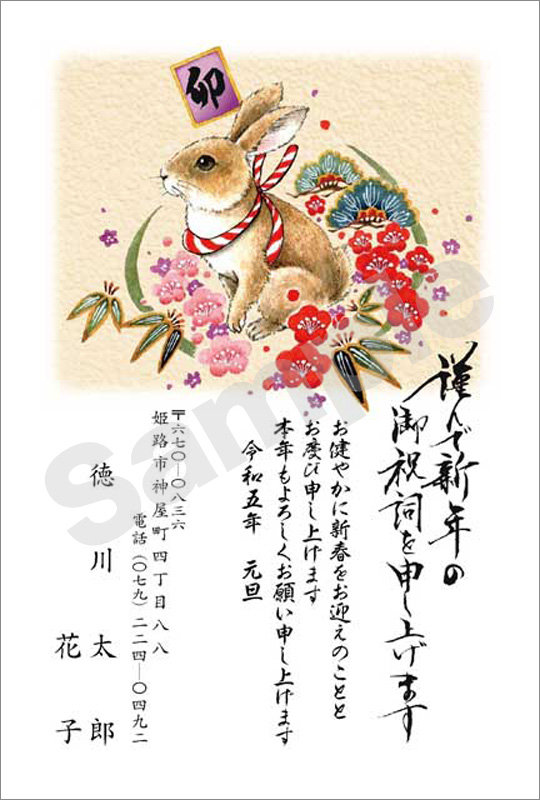 卯
謹んで新年の
御祝詞を申し上げます
お健やかに新春をお迎えのことと
お慶び申し上げます
本年もよろしくお願い申し上げます
令和五年 元旦
〒六七〇―〇八三六
姫路市神屋町四丁目八八
電話(〇七九)二二四―〇四九二
徳川 太郎
花子
Sample